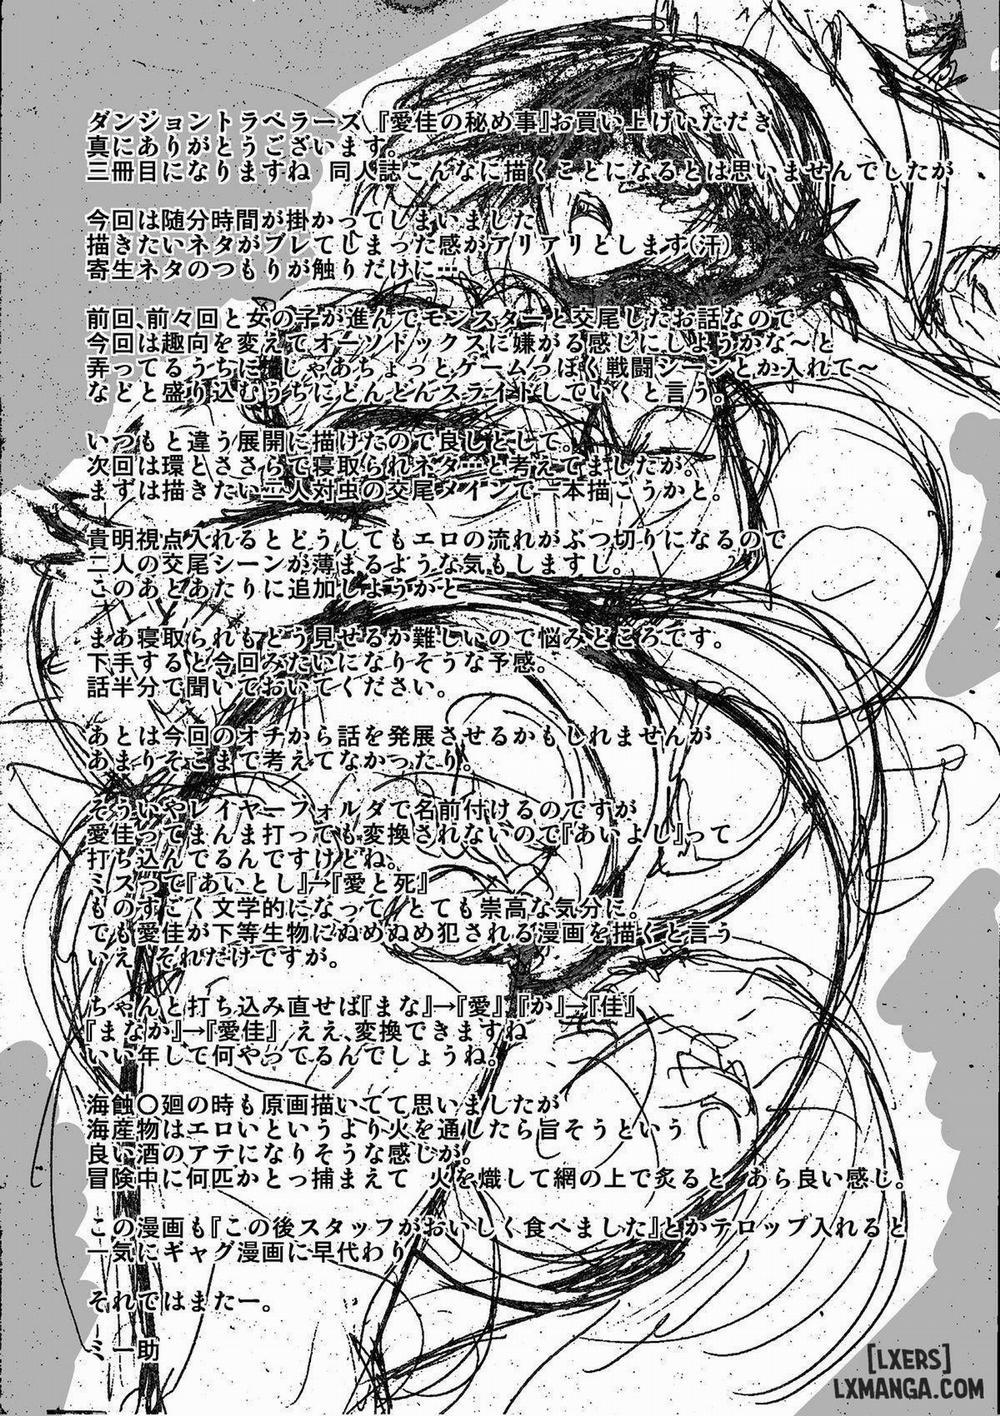 ダンジョントラベラーズ『愛佳の秘め事』お買い上げいただき
真にありがとうございます。
三冊目になりますね 同人誌こんなに描くことになるとは思いませんでしたが
今回は随分時間が掛かってしまいました
描きたいネタがブレてしまった感がアリアリとします(汗)
寄生ネタのつもりが触りだけに…
前回、前々回と女の子が進んでモンスターと交尾したお話なので
今回は趣向を変えてオーソドックスに嫌がる感じにしようかな～と
弄ってるうちに、じゃあちょっとゲームっぽく戦闘シーンとか入れて～
などと盛り込むうちにどんどんスライドしていくと言う。
いつもと違う展開に描けたので良しとして。
次回は環とささらで寝取られネタ…と考えてましたが。
まずは描きたい二人対虫の交尾メインで一本描こうかと。
貴明視点入れるとどうしてもエロの流れがぶつ切りになるので
二人の交尾シーンが薄まるような気もしますし。
このあとあたりに追加しようかと
まあ寝取られもどう見せるか難しいので悩みどころです。
下手すると今回みたいになりそうな予感。
話半分で聞いておいてください。
あとは今回のオチから話を発展させるかもしれませんが
あまりそこまで考えてなかったり。
そういやレイヤーフォルダで名前付けるのですが
愛佳ってまんま打っても変換されないので『あいよし』って
打ち込んでるんですけどね。
ミスって『あいとし』→『愛と死』
ものすごく文学的になって、とても崇高な気分に。
でも愛佳が下等生物にぬめぬめ犯される漫画を描くと言う
いえ、それだけですが。
ちゃんと打ち込み直せば『まな』→『愛』、『か』→『佳』
『まなか』→『愛佳』 ええ、変換できますね
いい年して何やってるんでしょうね。
海蝕〇廻の時も原画描いてて思いましたが
海産物はエロいというより火を通したら旨そうという
良い酒のアテになりそうな感じが。
冒険中に何匹かとっ捕まえて 火を熾して網の上で炙ると、あら良い感じ。
この漫画も『この後スタッフがおいしく食べました』とかテロップ入れると
一気にギャグ漫画に早代わり
それではまたー。
ミー助
[LXERS]
LXMANGA.COM